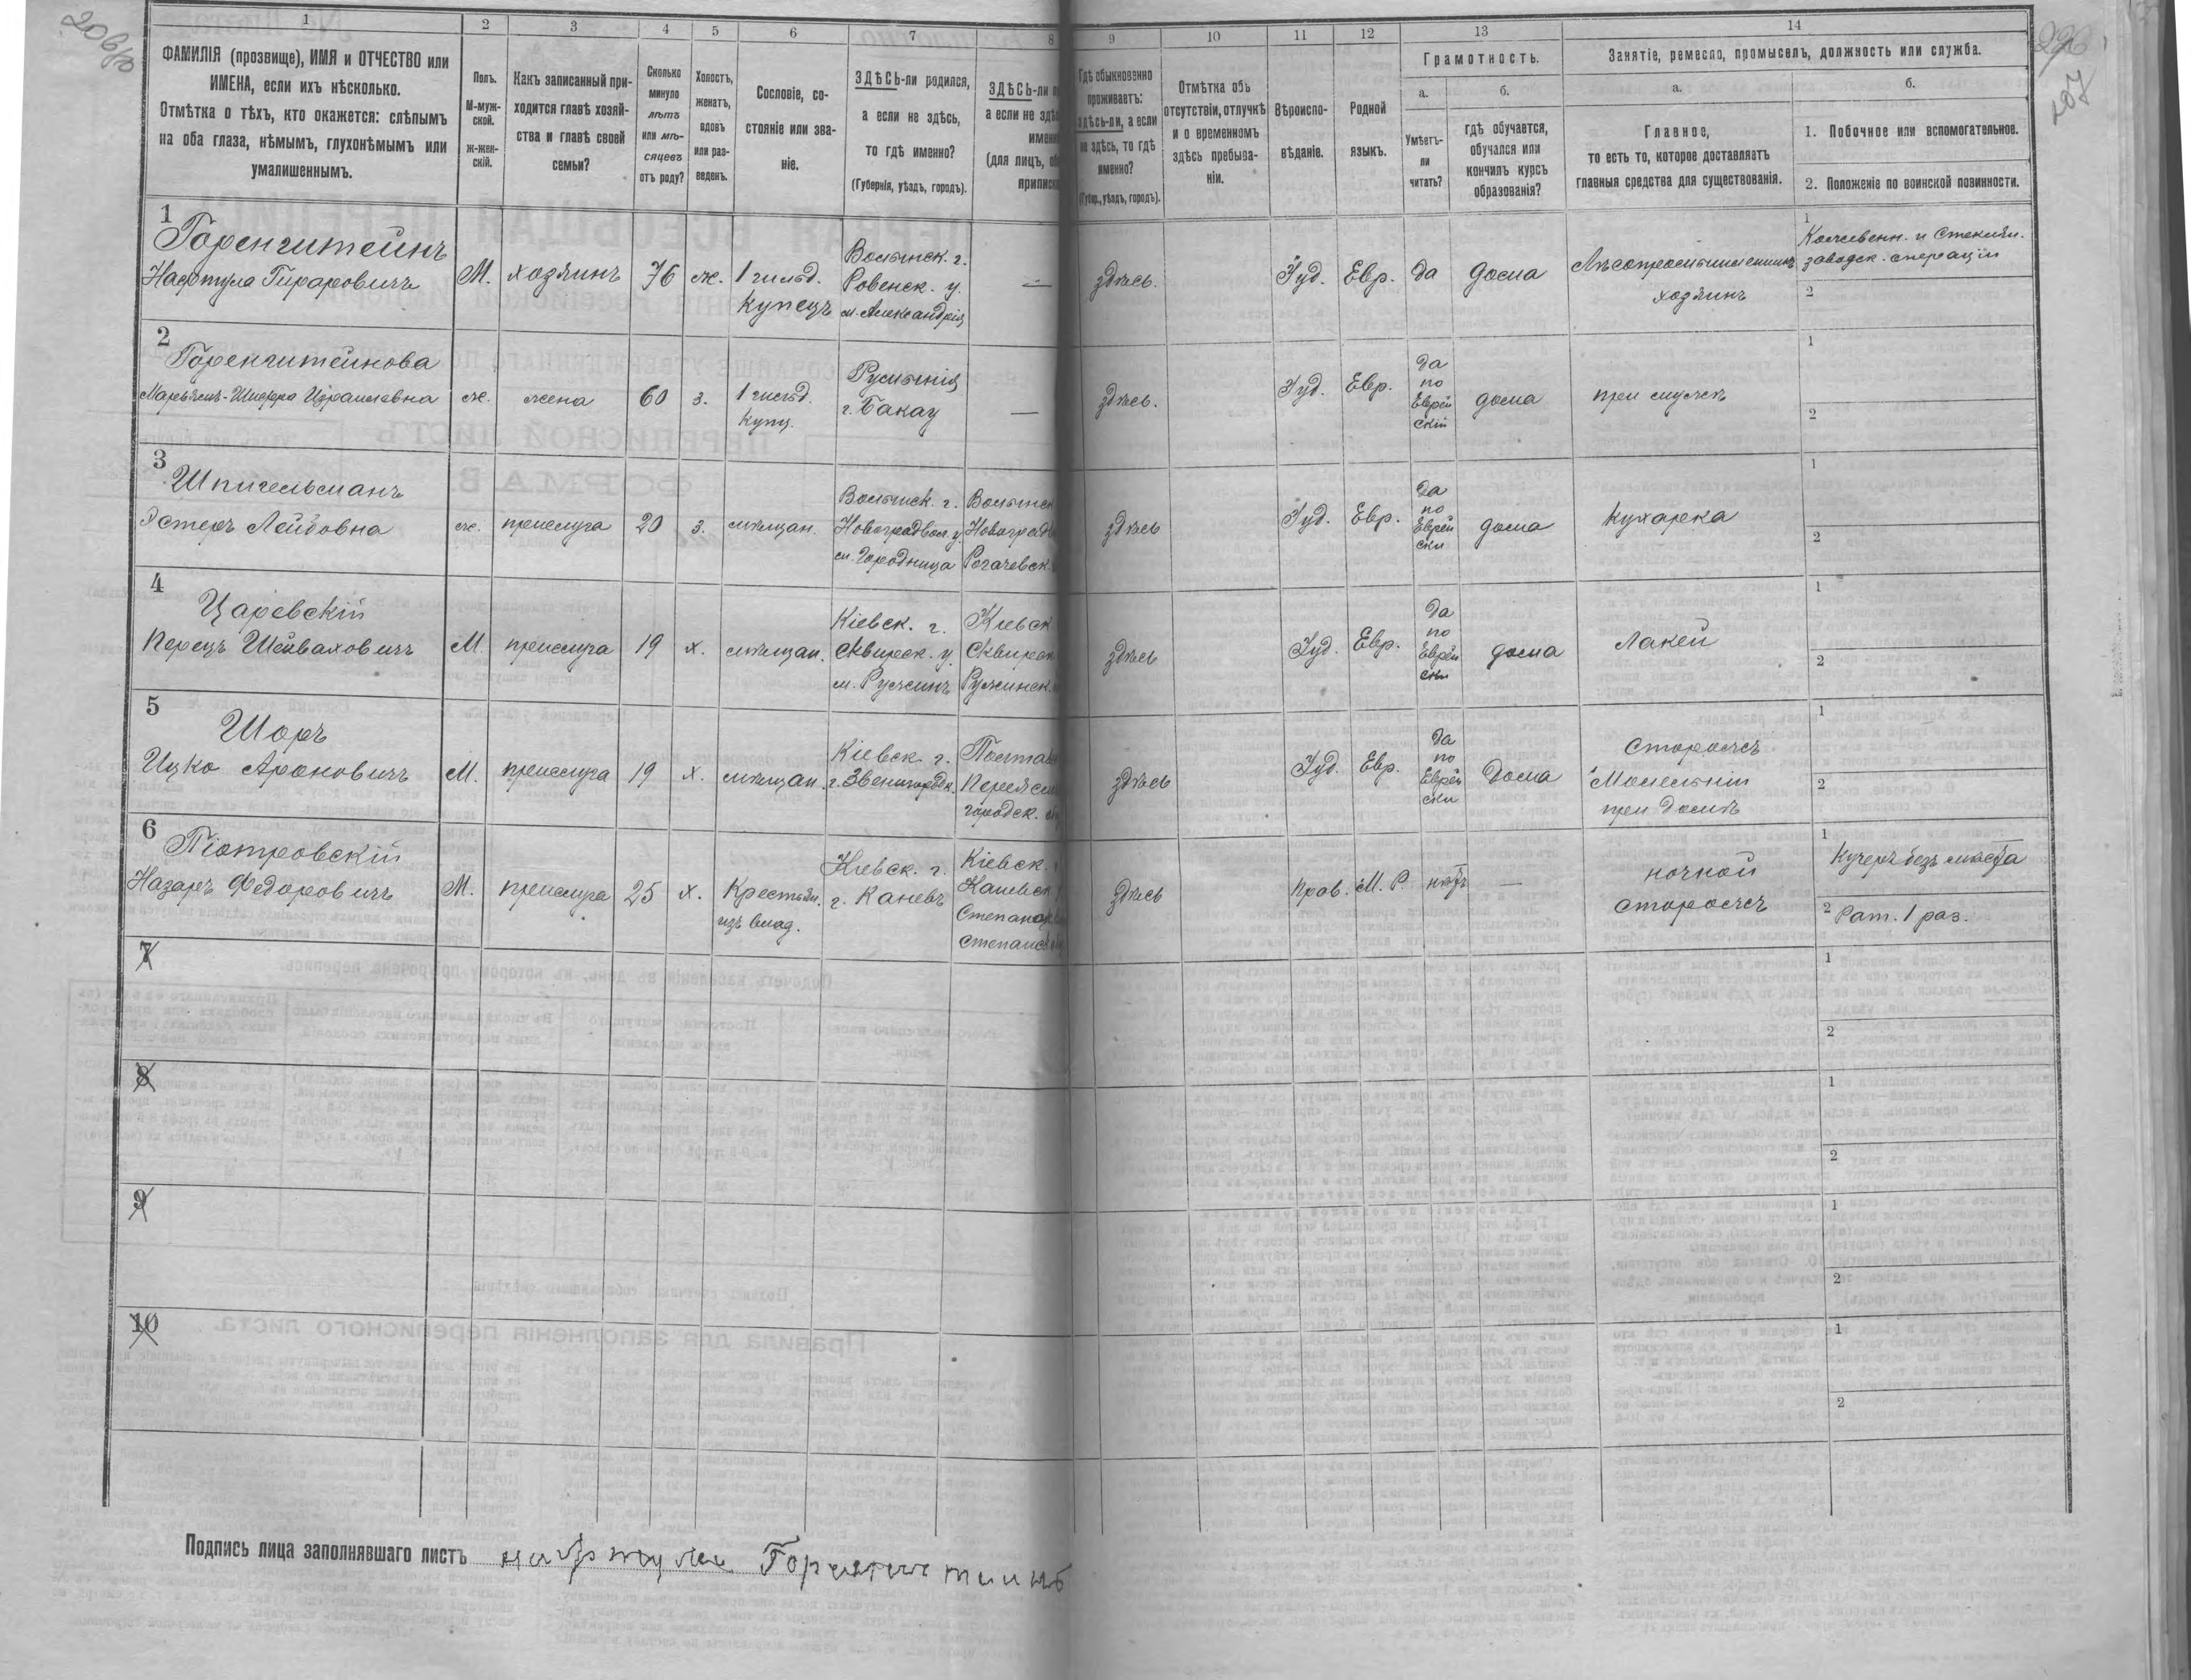 206/10
226
207
1
2
3
4
5
6
7
8
9
10
11
12
13
14
ФАМИЛІЯ (прозвище), ИМЯ и ОТЧЕСТВО или
ИМЕНА, если ихъ нѣсколько.
Отмѣтка о тѣхъ, кто окажется: слѣпымъ
на оба глаза, нѣмымъ, глухонѣмымъ или
умалишеннымъ.
Полъ.
М-муж-
ской.
ж-жен-
скій.
Какъ записанный при-
ходится главѣ хозяй-
ства и главѣ своей
семьи?
Сколько
минуло
лѣтъ
или мѣ-
сяцевъ
отъ роду?
Холостъ,
женатъ,
вдовъ
или раз-
веденъ.
Сословіе, со-
стояніе или зва-
ніе.
ЗДѢСЬ-ли родился,
а если не здѣсь,
то гдѣ именно?
(Губернія, уѣздъ, городъ).
ЗДѢСЬ-ли
а если не
(для лицъ,
Гдѣ обыкновенно
проживаетъ:
здѣсь-ли, а если
не здѣсь, то гдѣ
именно?
(Губер., уѣздъ, городъ).
Отмѣтка объ
отсутствіи, отлучкѣ
и о временномъ
здѣсь пребыва-
ніи.
Вѣроиспо-
вѣданіе.
Родной
языкъ.
Грамотность.
а.
Умѣетъ-
ли
читать?
б.
гдѣ обучается,
обучался или
кончилъ курсъ
образованія?
Занятіе, ремесло, промыселъ, должность или служба.
а.
Главное,
то есть то, которое доставляетъ
главныя средства для существованія.
б.
1. Побочное или вспомогательное.
2. Положеніе по воинской повинности.
1
Горенштейнъ
Нафтула
М.
хозяинъ
76
ж.
1 гильд.
купецъ
Волынск. г.
Ровенск. у.
м. Александрія
—
здѣсь.
Іуд.
Евр.
да
дома
Лѣсопромышленникъ
хозяинъ
1
и Стеклян.
заводск. операціи
2
2
Горенштейнова
Израилевна
ж.
жена
60
з.
1 гильд.
купц.
Румынія
г. Бакау
—
здѣсь.
Іуд.
Евр.
да
по
Еврей
скій
дома
при мужѣ
1
2
3
Шпигельманъ
Эстеръ Лейбовна
ж.
прислуга
20
з.
мѣщан.
Волынск. г.
Новоградвол. у.
м. Городница
Волынск
Новоград
Рогачевск.
здѣсь
Іуд.
Евр.
Да
по
Еврей
ски
дома
кухарка
1
2
4
Царевскій
Перецъ Шейваховичъ
М.
прислуга
19
х.
мѣщан.
Кіевск. г.
Сквирск. у.
м. Ружинъ
Кіевск
Сквирск
Ружинск.
здѣсь
Іуд.
Евр.
Да
по
Еврей
ски
дома
Лакей
1
2
5
Шоръ
Ицко Ароновичъ
М.
прислуга
19
х.
мѣщан.
Кіевск. г.
г. Звенигородк.
Полтав
Переясл
городск.
здѣсь
Іуд.
Евр.
Да
по
Еврей
ски
Дома
Сторожъ
Молельни
при домѣ
1
2
6
Піотровскій
Назаръ Федоровичъ
М.
прислуга
25
х.
Крестьян.
изъ влад.
Кіевск. г.
г. Каневъ
Кіевск.
Каневск
Степанец
Степанец
здѣсь
Прав.
М. Р.
нѣтъ
—
ночной
сторожъ
1
Кучеръ безъ мѣста
2 Рат. 1 раз.
7
1
2
8
1
2
9
1
2
10
1
2
Подпись лица заполнявшаго листъ нафтула Горенштейнъ